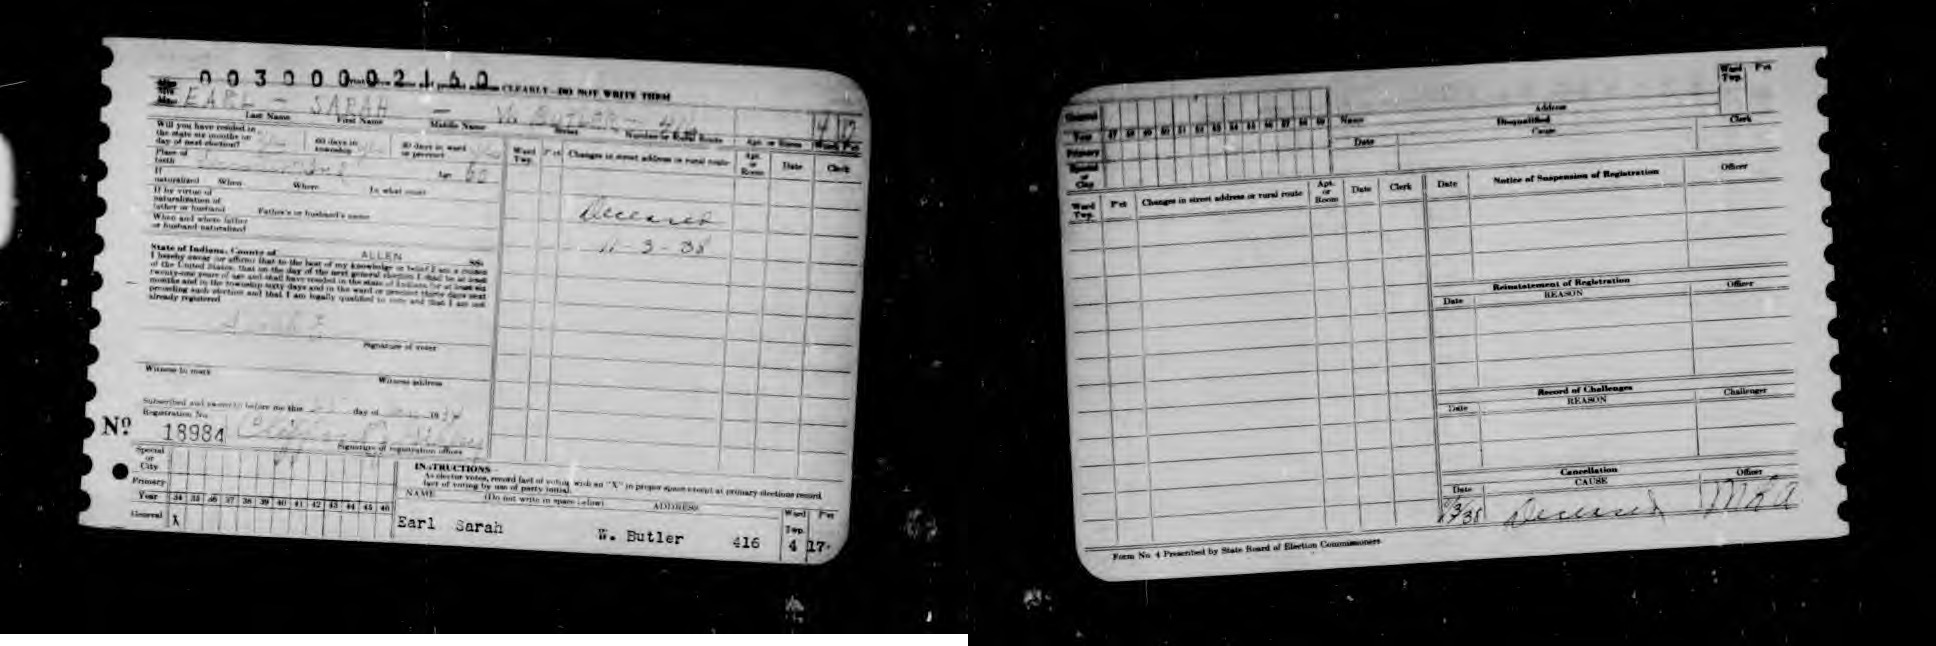 00300002160
CLEARLY—DO NOT WRITE THEM
Mrs.
Miss
EARL - SARAH - W. BUTLER - 416 4 17
Last Name First Name Middle Name Street Number or Rural Route Apt. or Room Ward Pct
Will you have resided in
the state six months on
day of next election?
60 days in
township
30 days in ward
or precinct
Place of
birth
Age 60
If
naturalized When Where In what court
If by virtue of
naturalization of
father or husband Father's or husband's name
When and where father
or husband naturalized
State of Indiana, County of ALLEN SS:
I hereby swear (or affirm) that to the best of my knowledge or belief I am a citizen
of the United States, that on the day of the next general election I shall be at least
twenty-one years of age and shall have resided in the state of Indiana for at least six
months and in the township sixty days and in the ward or precinct thirty days next
preceding such election and that I am legally qualified to vote and that I am not
already registered
Signature of voter
Witness to mark Witness address
Subscribed and sworn to before me this day of 19
Registration No.
No 18984
Signature of registration officer
Ward
Twp. Pct Changes in street address or rural route Apt.
or
Room Date Clerk
Deceased
11-3-38
Special
or
City
Primary
Year 34 35 36 37 38 39 40 41 42 43 44 45 46
General X
INSTRUCTIONS—
As elector votes, record fact of voting with an "X" in proper space except at primary elections record
fact of voting by use of party initial.
NAME (Do not write in space below) ADDRESS Ward
Twp. Pct
Earl Sarah W. Butler 416 4 17
Ward
Twp. Pct
General
Year 47 48 49 50 51 52 53 54 55 56 57 58 59
Primary
Special
or
City
Name Address
Disqualified
Date Cause Clerk
Ward
Twp. Pct Changes in street address or rural route Apt.
or
Room Date Clerk
Date Notice of Suspension of Registration Officer
Reinstatement of Registration
Date REASON Officer
Record of Challenges
Date REASON Challenger
Cancellation
Date CAUSE Officer
11/3/38 Deceased
Form No. 4 Prescribed by State Board of Election Commissioners